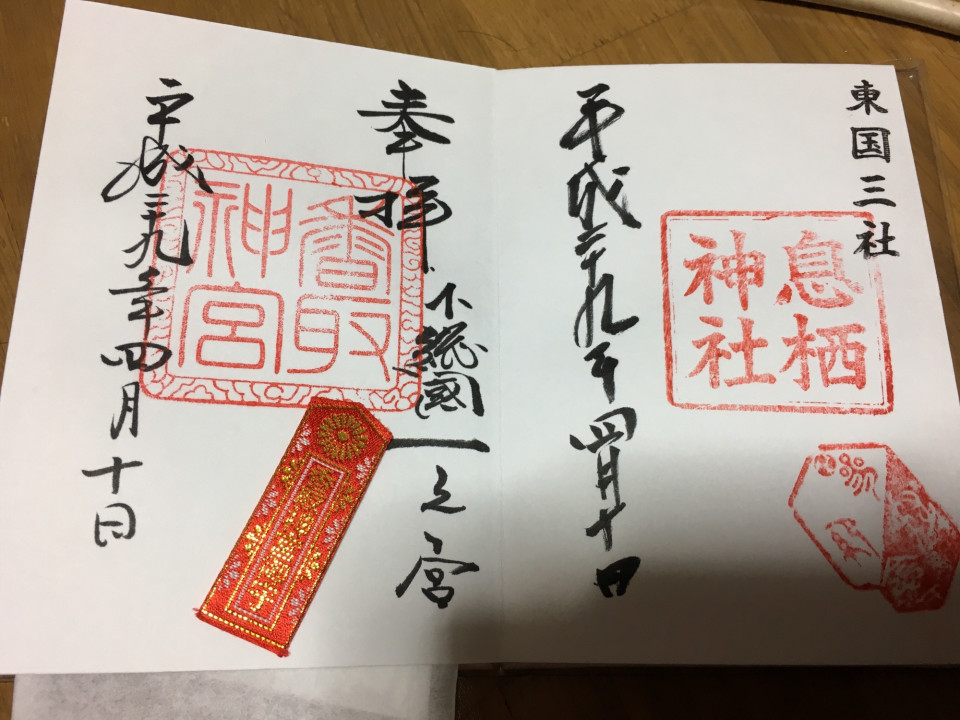 東国三社
息栖
神社
平成二十九年四月十日
奉拝
下総國一之宮
香取
神宮
平成二十九年四月十日